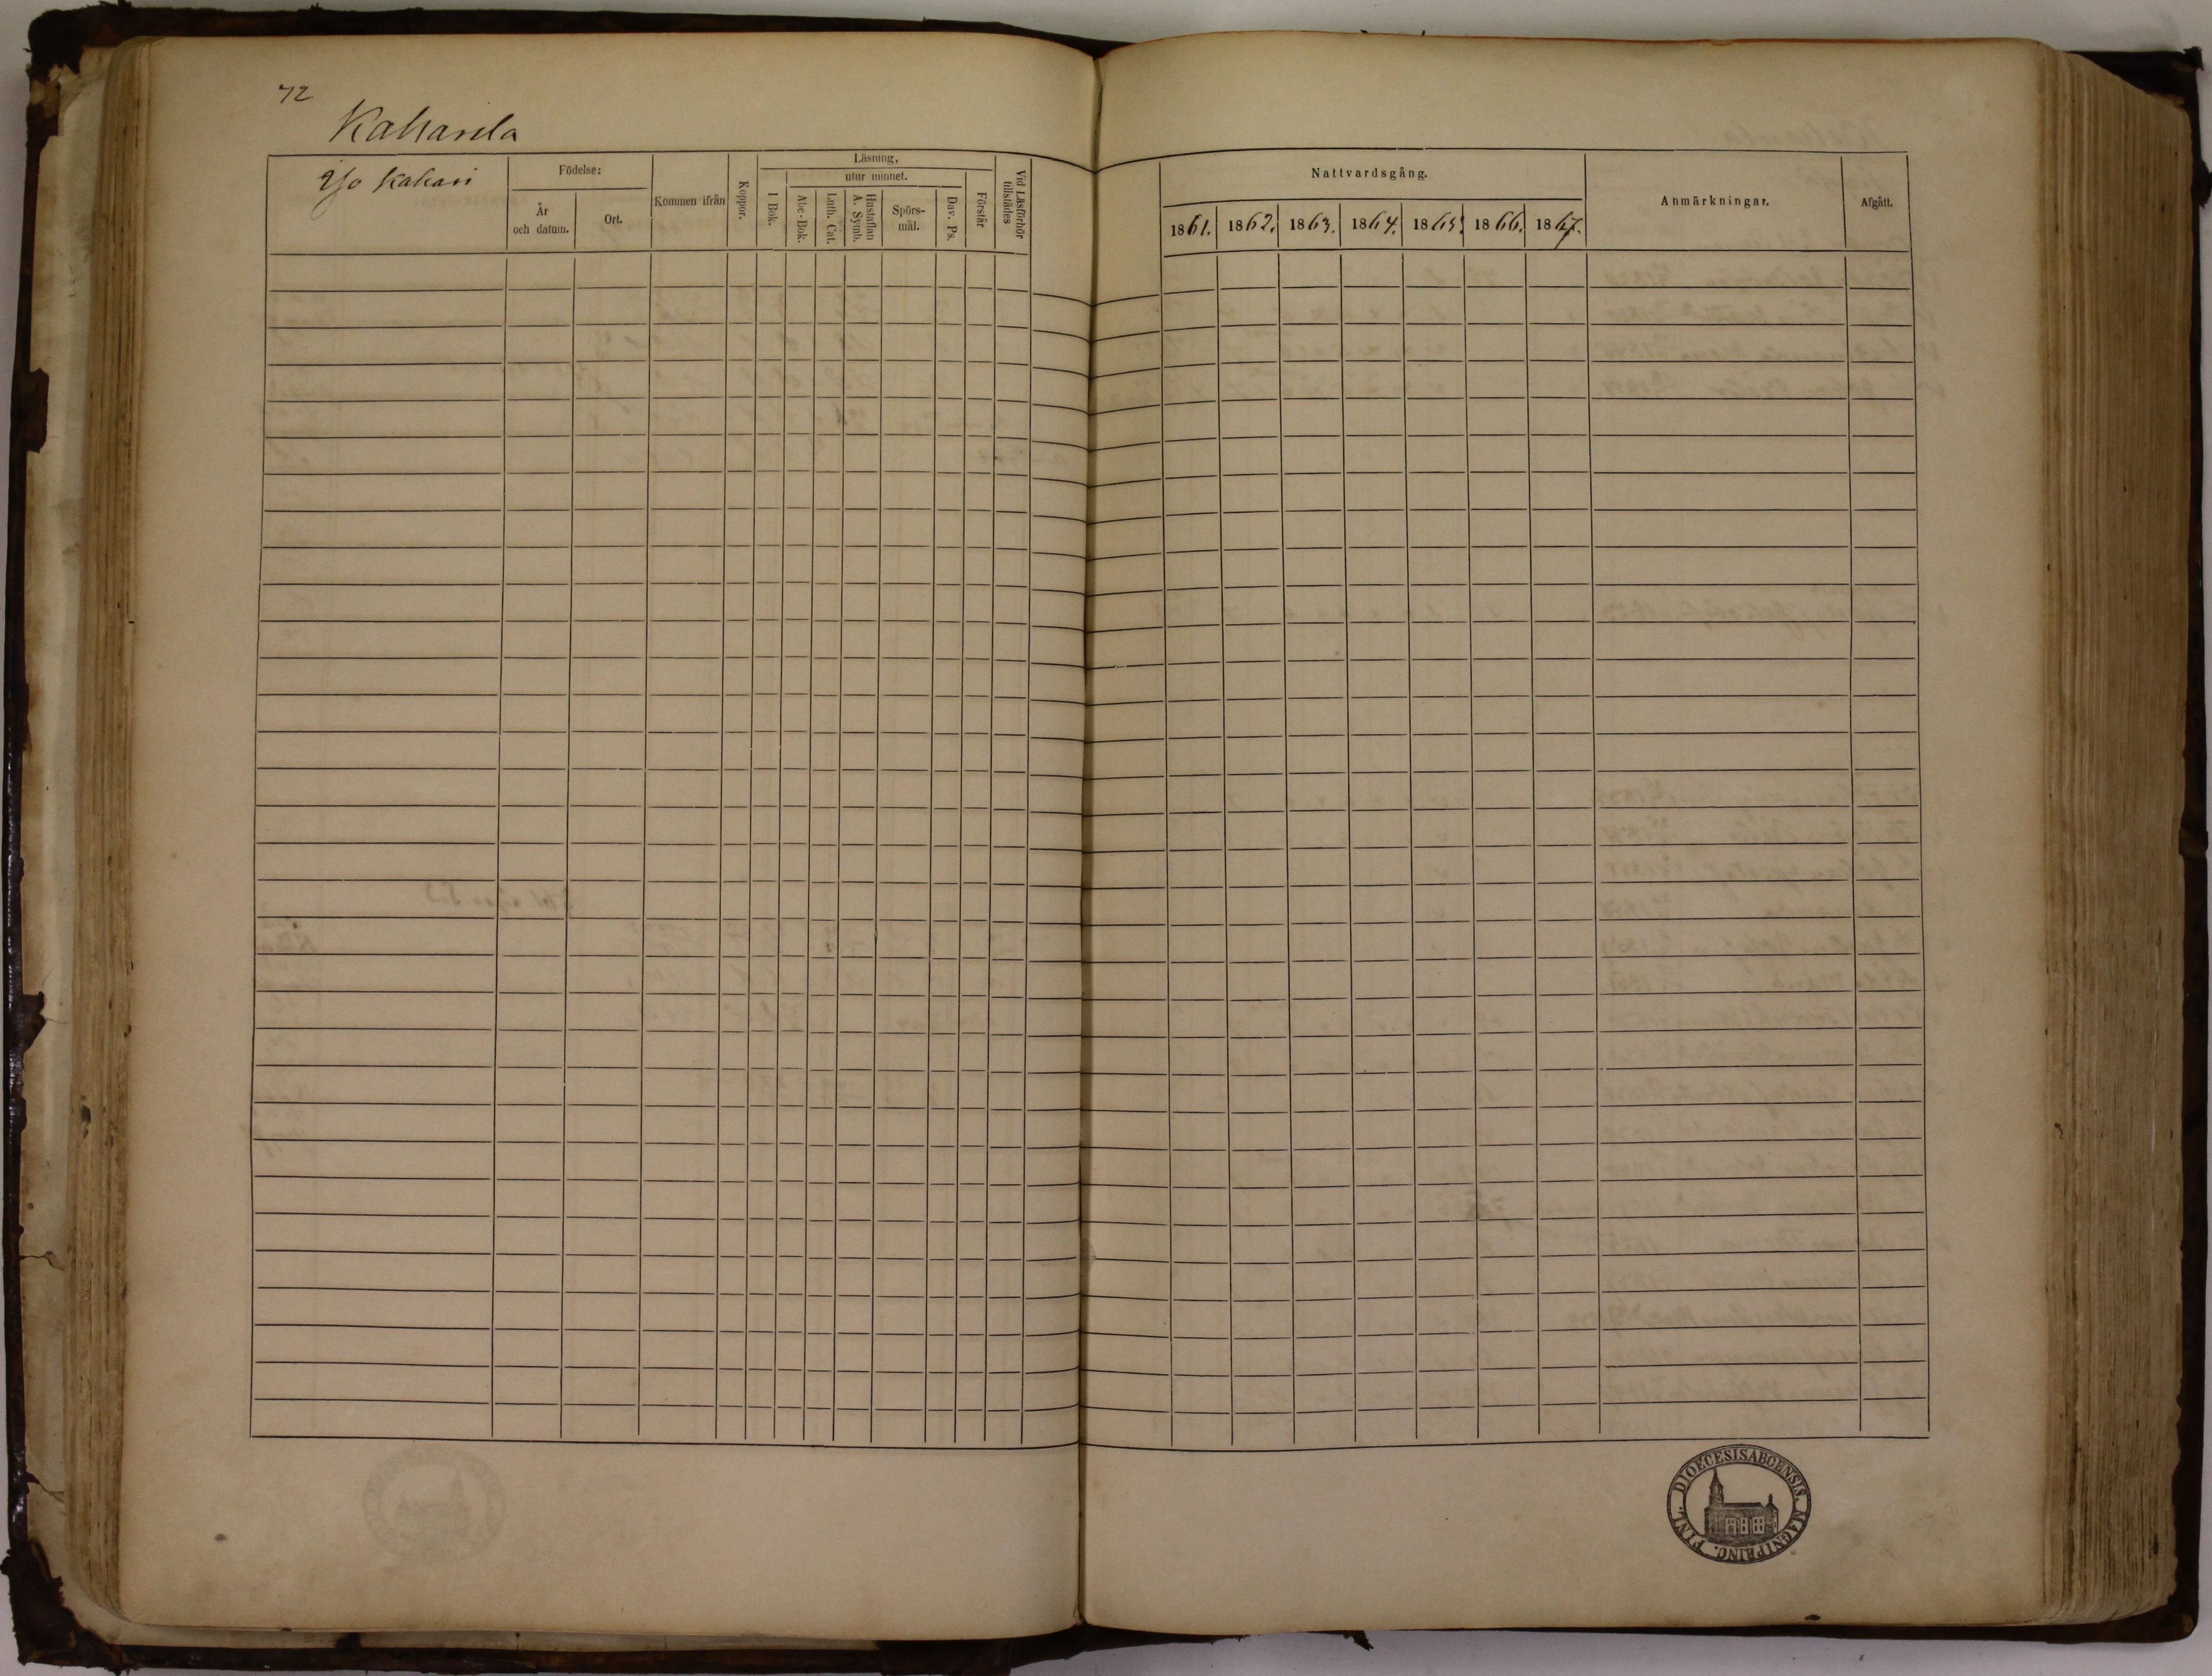 72
Kaharila
Yso Kahari
Födelse:
År
och datum.
Ort.
Kommen ifrån
Koppor.
Läsning,
I Bok.
utur minnet.
Abc-Bok.
Luth. Cat.
Hustaflan
A. Symb.
Spörs-
mål.
Dav. Ps.
Förstår
Vid Läsförhör
tillstädes
Nattvardsgång.
1861. 1862. 1863. 1864. 1865. 1866. 1867.
Anmärkningar.
Afgått.
DIOECESIS ABOENSIS. MAGNI PRINC. FINL.